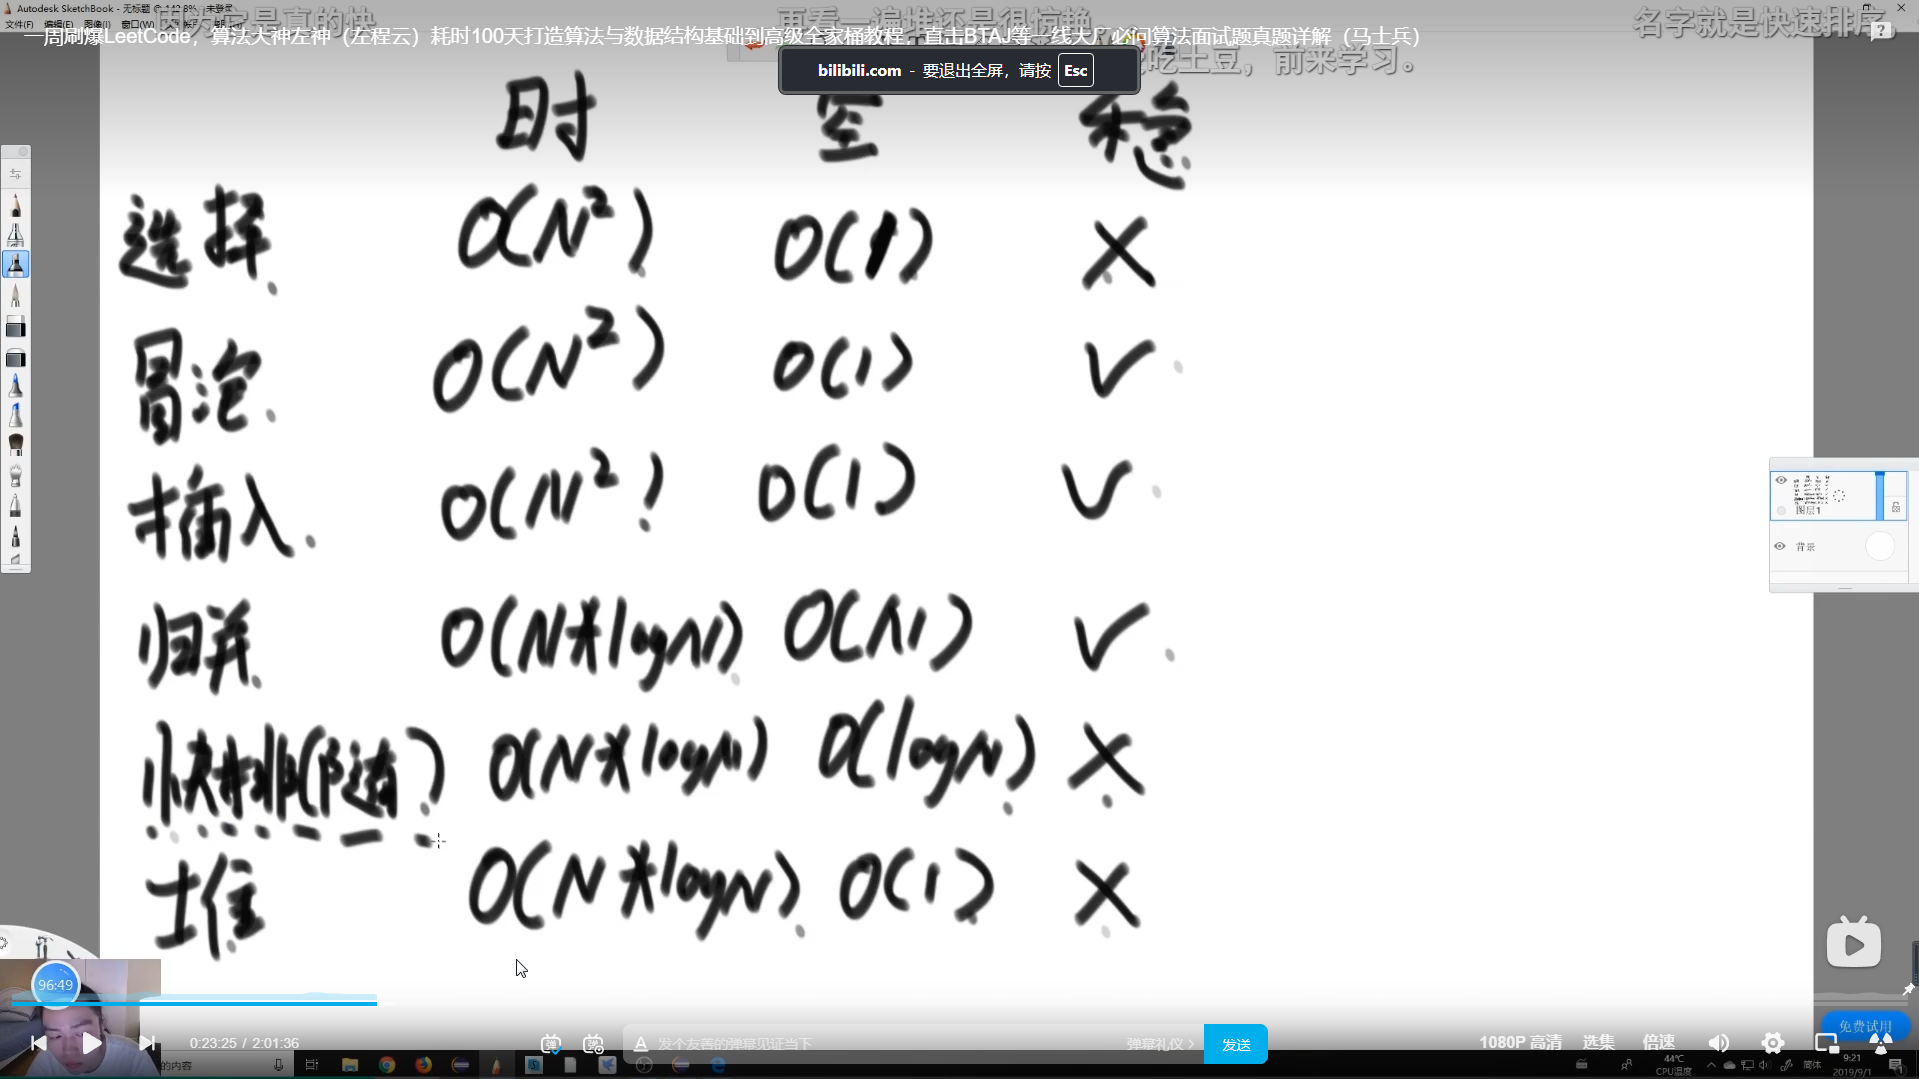 Autodesk SketchBook - 无标题 @ 142.8% - 未登录
因为它是真的快
再看一遍堆还是很惊艳
名字就是快速排序
文件(F) 编辑(E) 图像(I) 窗口(W)
一周刷爆LeetCode，算法大神左神（左程云）耗时100天打造算法与数据结构基础到高级全家桶教程，直击BTAJ等一线大厂必问算法面试题真题详解（马士兵）
吃土豆，前来学习。
bilibili.com - 要退出全屏，请按 Esc
时 空 稳
选择 O(N²) O(1) X
冒泡 O(N²) O(1) √
插入 O(N²) O(1) √
归并 O(N*logN) O(N) √
快排(随) O(N*logN) O(logN) X
堆 O(N*logN) O(1) X
图层1
背景
96:49
免费试用
0:23:25 / 2:01:36
弹
弹
A 发个友善的弹幕见证当下
弹幕礼仪 >
发送
1080P 高清
选集
倍速
的内容
44℃
CPU温度
简体
9:21
2019/9/1